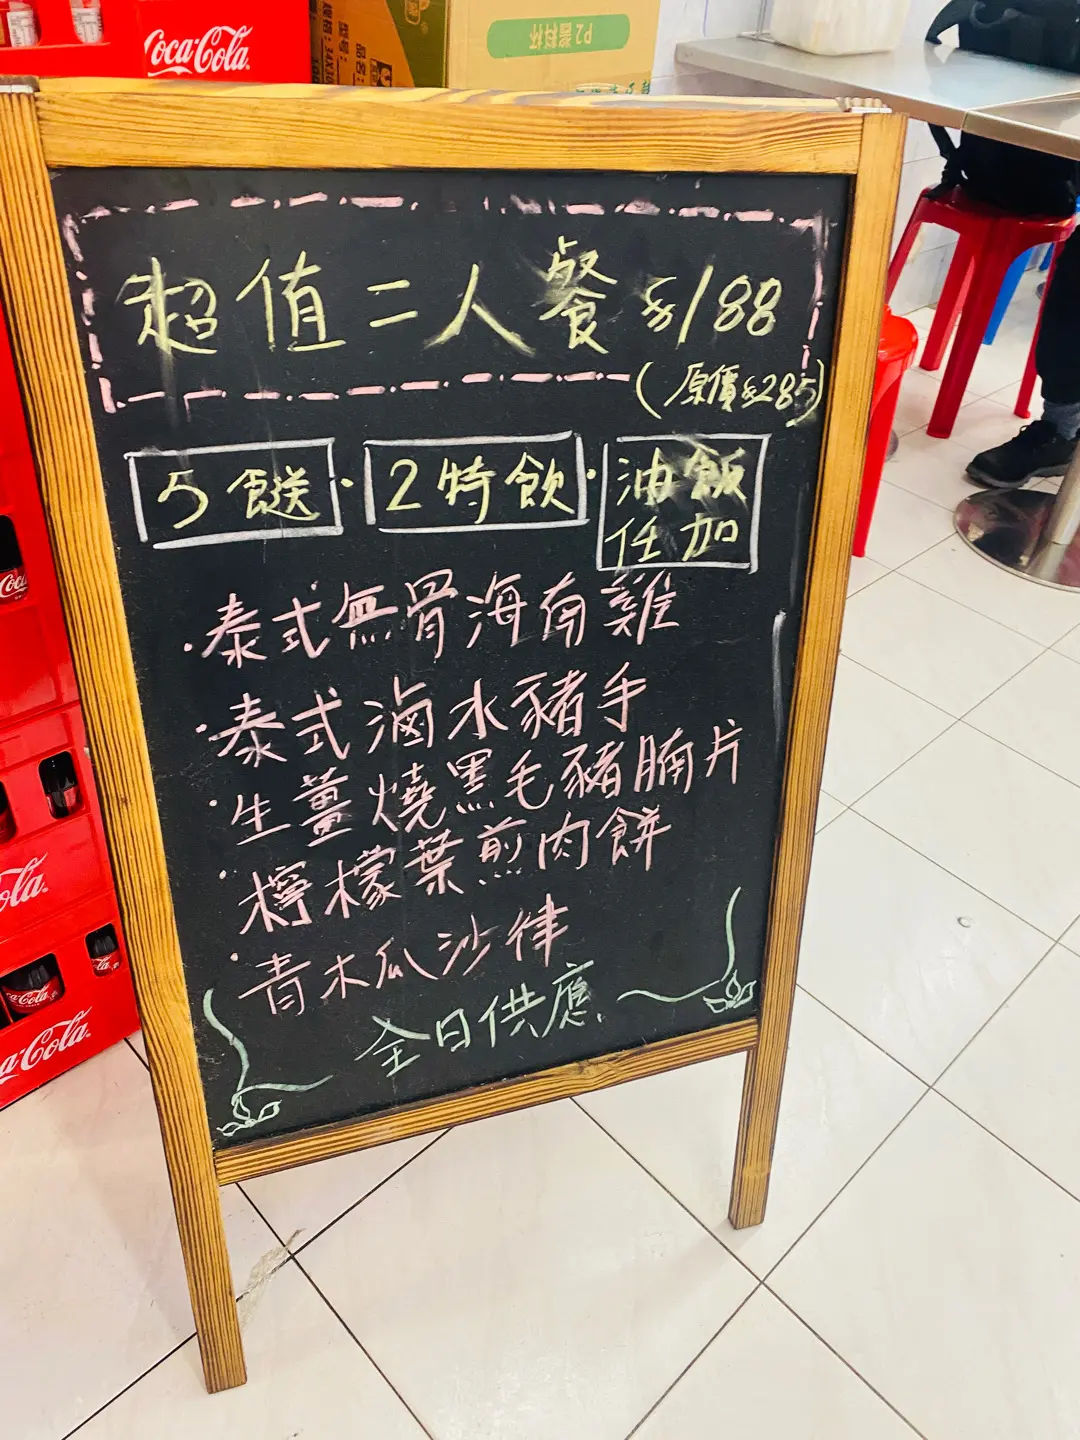 Coca-Cola
P2醬料杯
超值二人餐 $188
(原價$285)
5餸 · 2特飲 · 油飯任加
· 泰式無骨海南雞
· 泰式滷水豬手
· 生薑燒黑毛豬腩片
· 檸檬葉煎肉餅
· 青木瓜沙律
全日供應
Coca-Cola
Coca-Cola